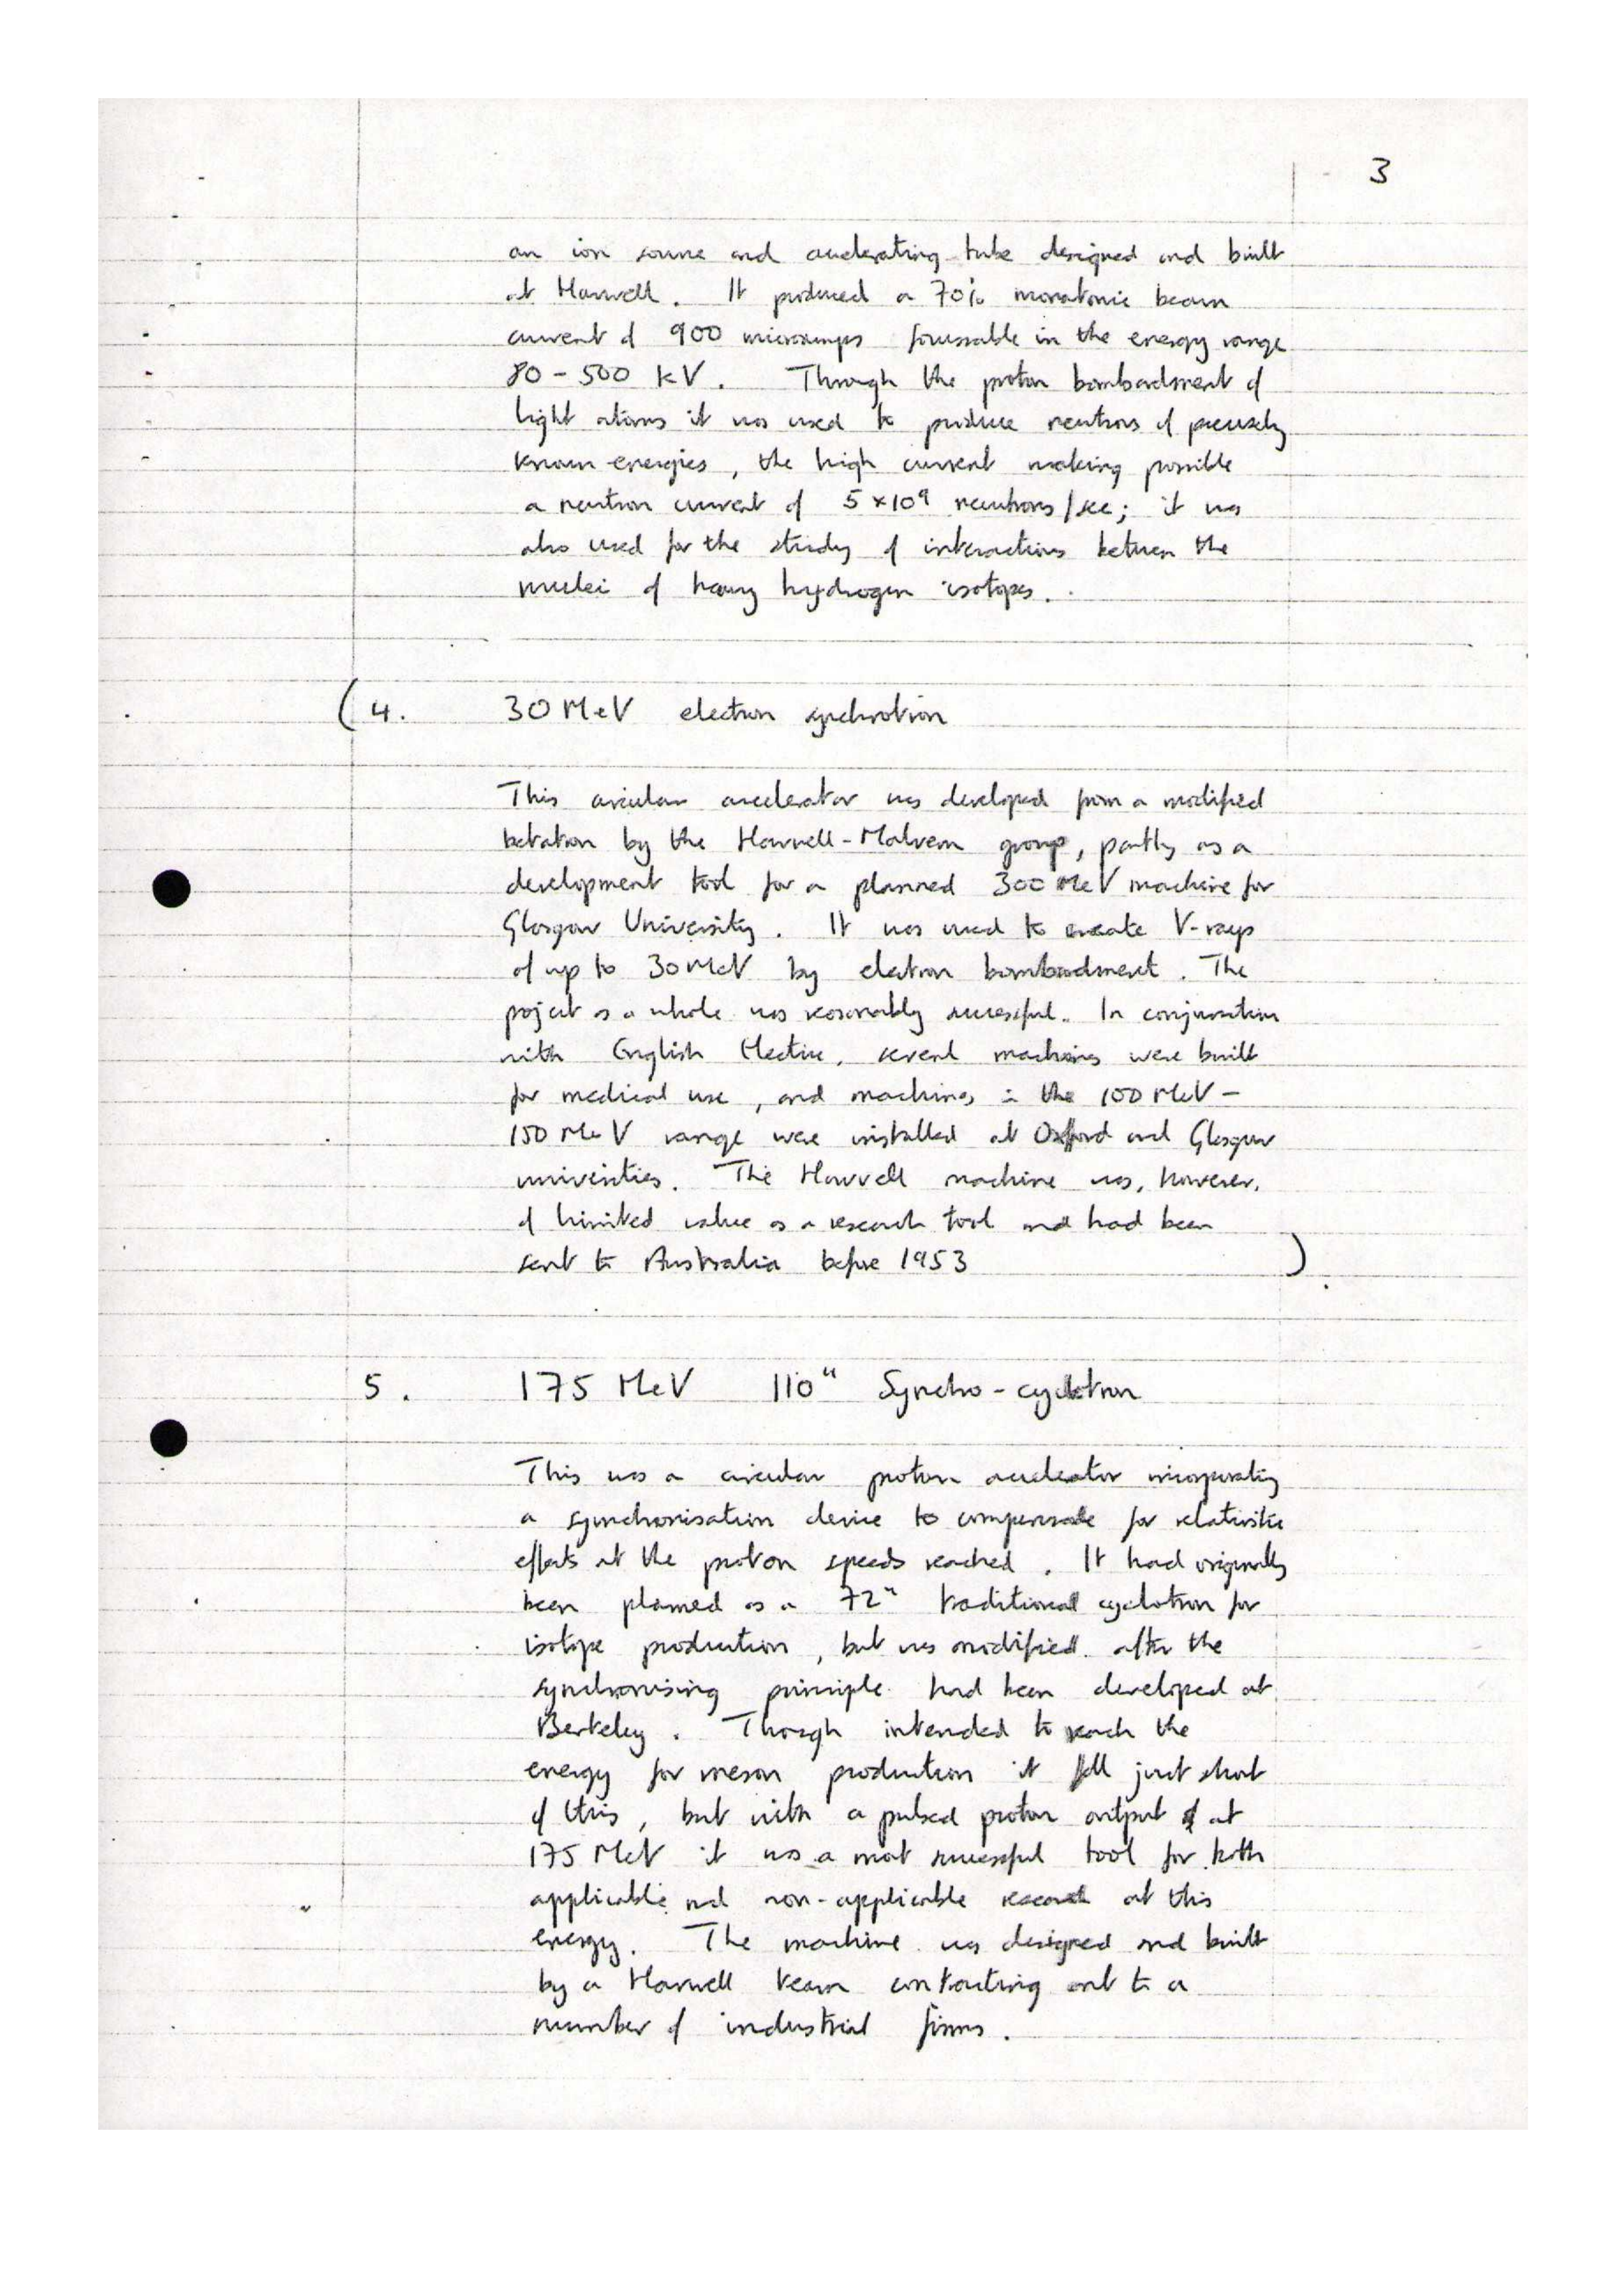 3
an ion source and accelerating tube designed and built
at Harwell. It produced a 70% monatomic beam
current of 900 microamps focussable in the energy range
80-500 kV. Through the proton bombardment of
light atoms it was used to produce neutrons of precisely
known energies, the high current making possible
a neutron current of 5 x 10⁹ neutrons/sec; it was
also used for the study of interactions between the
nuclei of heavy hydrogen isotopes.
(4. 30 MeV electron synchrotron
This circular accelerator was developed from a modified
betatron by the Harwell-Malvern group, partly as a
development tool for a planned 300 MeV machine for
Glasgow University. It was used to create V-rays
of up to 30 MeV by electron bombardment. The
project as a whole was reasonably successful. In conjunction
with English Electric, several machines were built
for medical use, and machines in the 100 MeV -
150 MeV range were installed at Oxford and Glasgow
universities. The Harwell machine was, however,
of limited value as a research tool and had been
sent to Australia before 1953 )
5. 175 MeV 110" Synchro-cyclotron
This was a circular proton accelerator incorporating
a synchronisation device to compensate for relativistic
effects at the proton speeds reached. It had originally
been planned as a 72" traditional cyclotron for
isotope production, but was modified after the
synchronising principle had been developed at
Berkeley. Though intended to reach the
energy for meson production it fell just short
of this, but with a pulsed proton output at
175 MeV it was a most successful tool for both
applicable and non-applicable research at this
energy. The machine was designed and built
by a Harwell team contracting out to a
number of industrial firms.